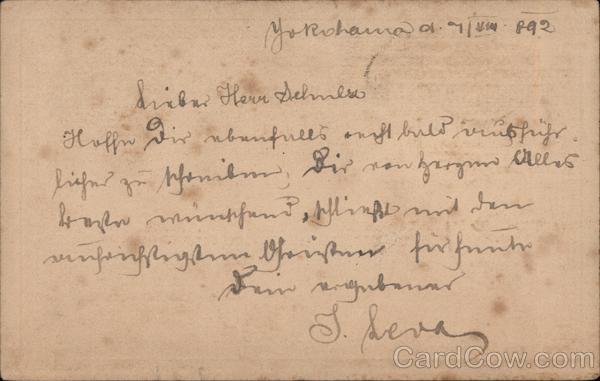 Yokohama d. 7/VIII 892
Lieber Herr
Hoffe Dir ebenfalls recht bald ausführ-
licher zu schreiben, Dir von Herzen Alles
beste wünschend, schließt mit den
aufrichtigsten für heute
Dein ergebener
J. Leva
CardCow.com